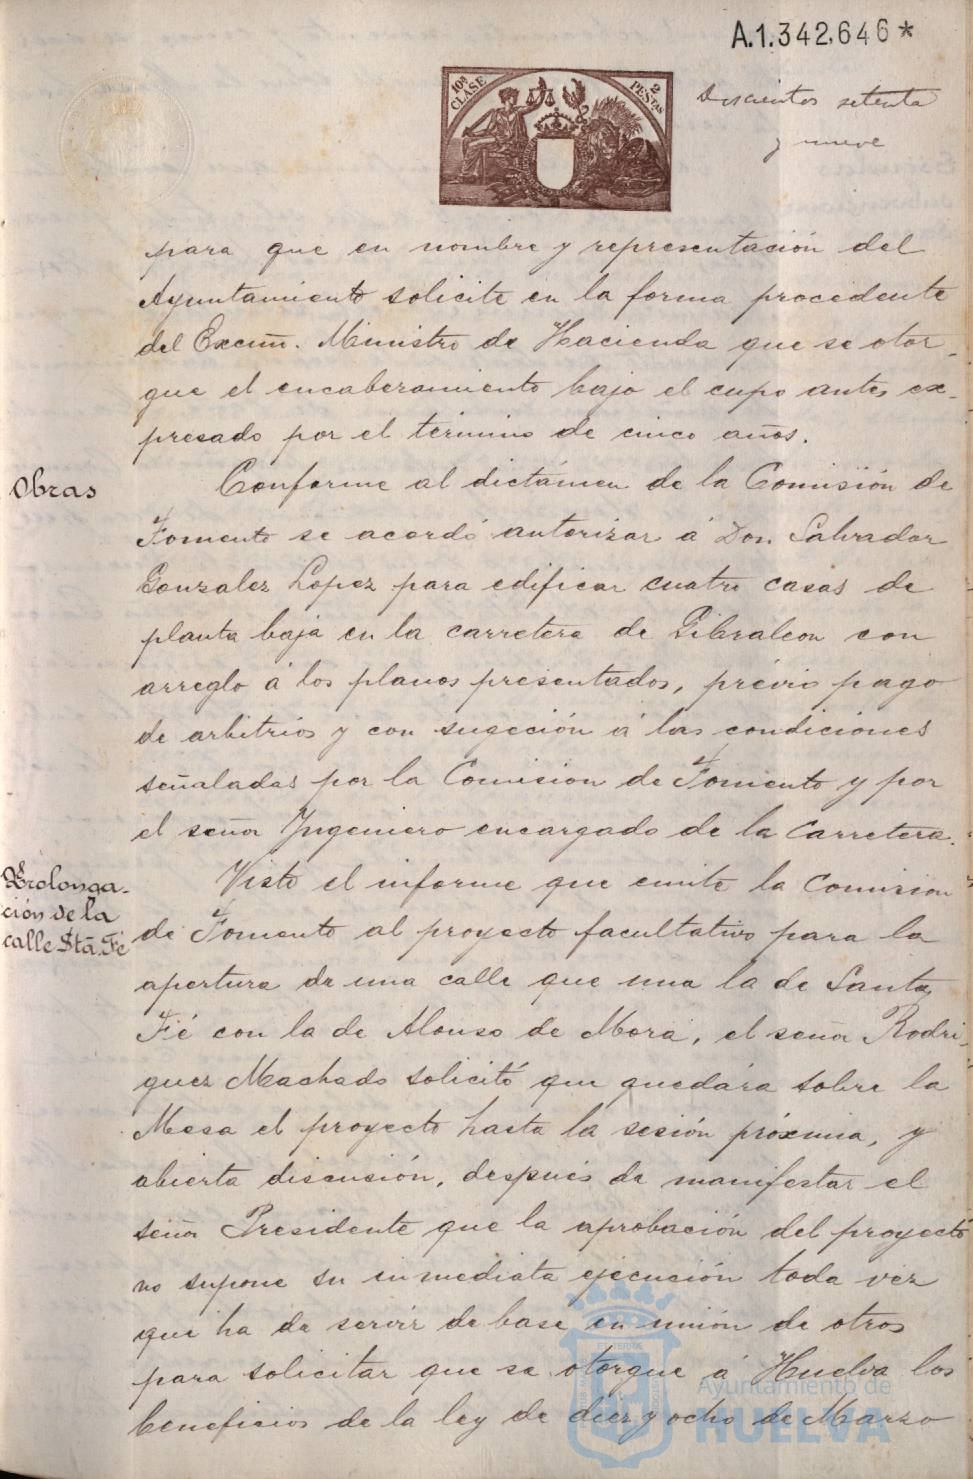 A.1.342.646*
10ª CLASE
2 PESETAS
Doscientos setenta
y nueve
para que en nombre y representación del
Ayuntamiento solicite en la forma procedente
del Excmo. Ministro de Hacienda que se otor-
gue el encabezamiento bajo el cupo antes ex-
presado por el término de cinco años.
Obras
Conforme al dictámen de la Comisión de
Fomento se acordó autorizar á Don Salvador
Gonzalez Lopez para edificar cuatro casas de
planta baja en la carretera de Gibraleon con
arreglo á los planos presentados, prévio pago
de arbitrios y con sugeción á las condiciones
señaladas por la Comision de Fomento y por
el señor Ingeniero encargado de la Carretera.
Prolonga-
ción de la
calle Stª Fé
Visto el informe que emite la Comision
de Fomento al proyecto facultativo para la
apertura de una calle que una la de Santa
Fé con la de Alonso de Mora, el señor Rodri-
guez Machado solicitó que quedára sobre la
Mesa el proyecto hasta la sesión próxima, y
abierta discusión, después de manifestar el
señor Presidente que la aprobación del proyecto
no supone su inmediata ejecución toda vez
que ha de servir de base en unión de otros
para solicitar que se otorgue á Huelva los
beneficios de la ley de diez y ocho de Marzo
Ayuntamiento de
HUELVA